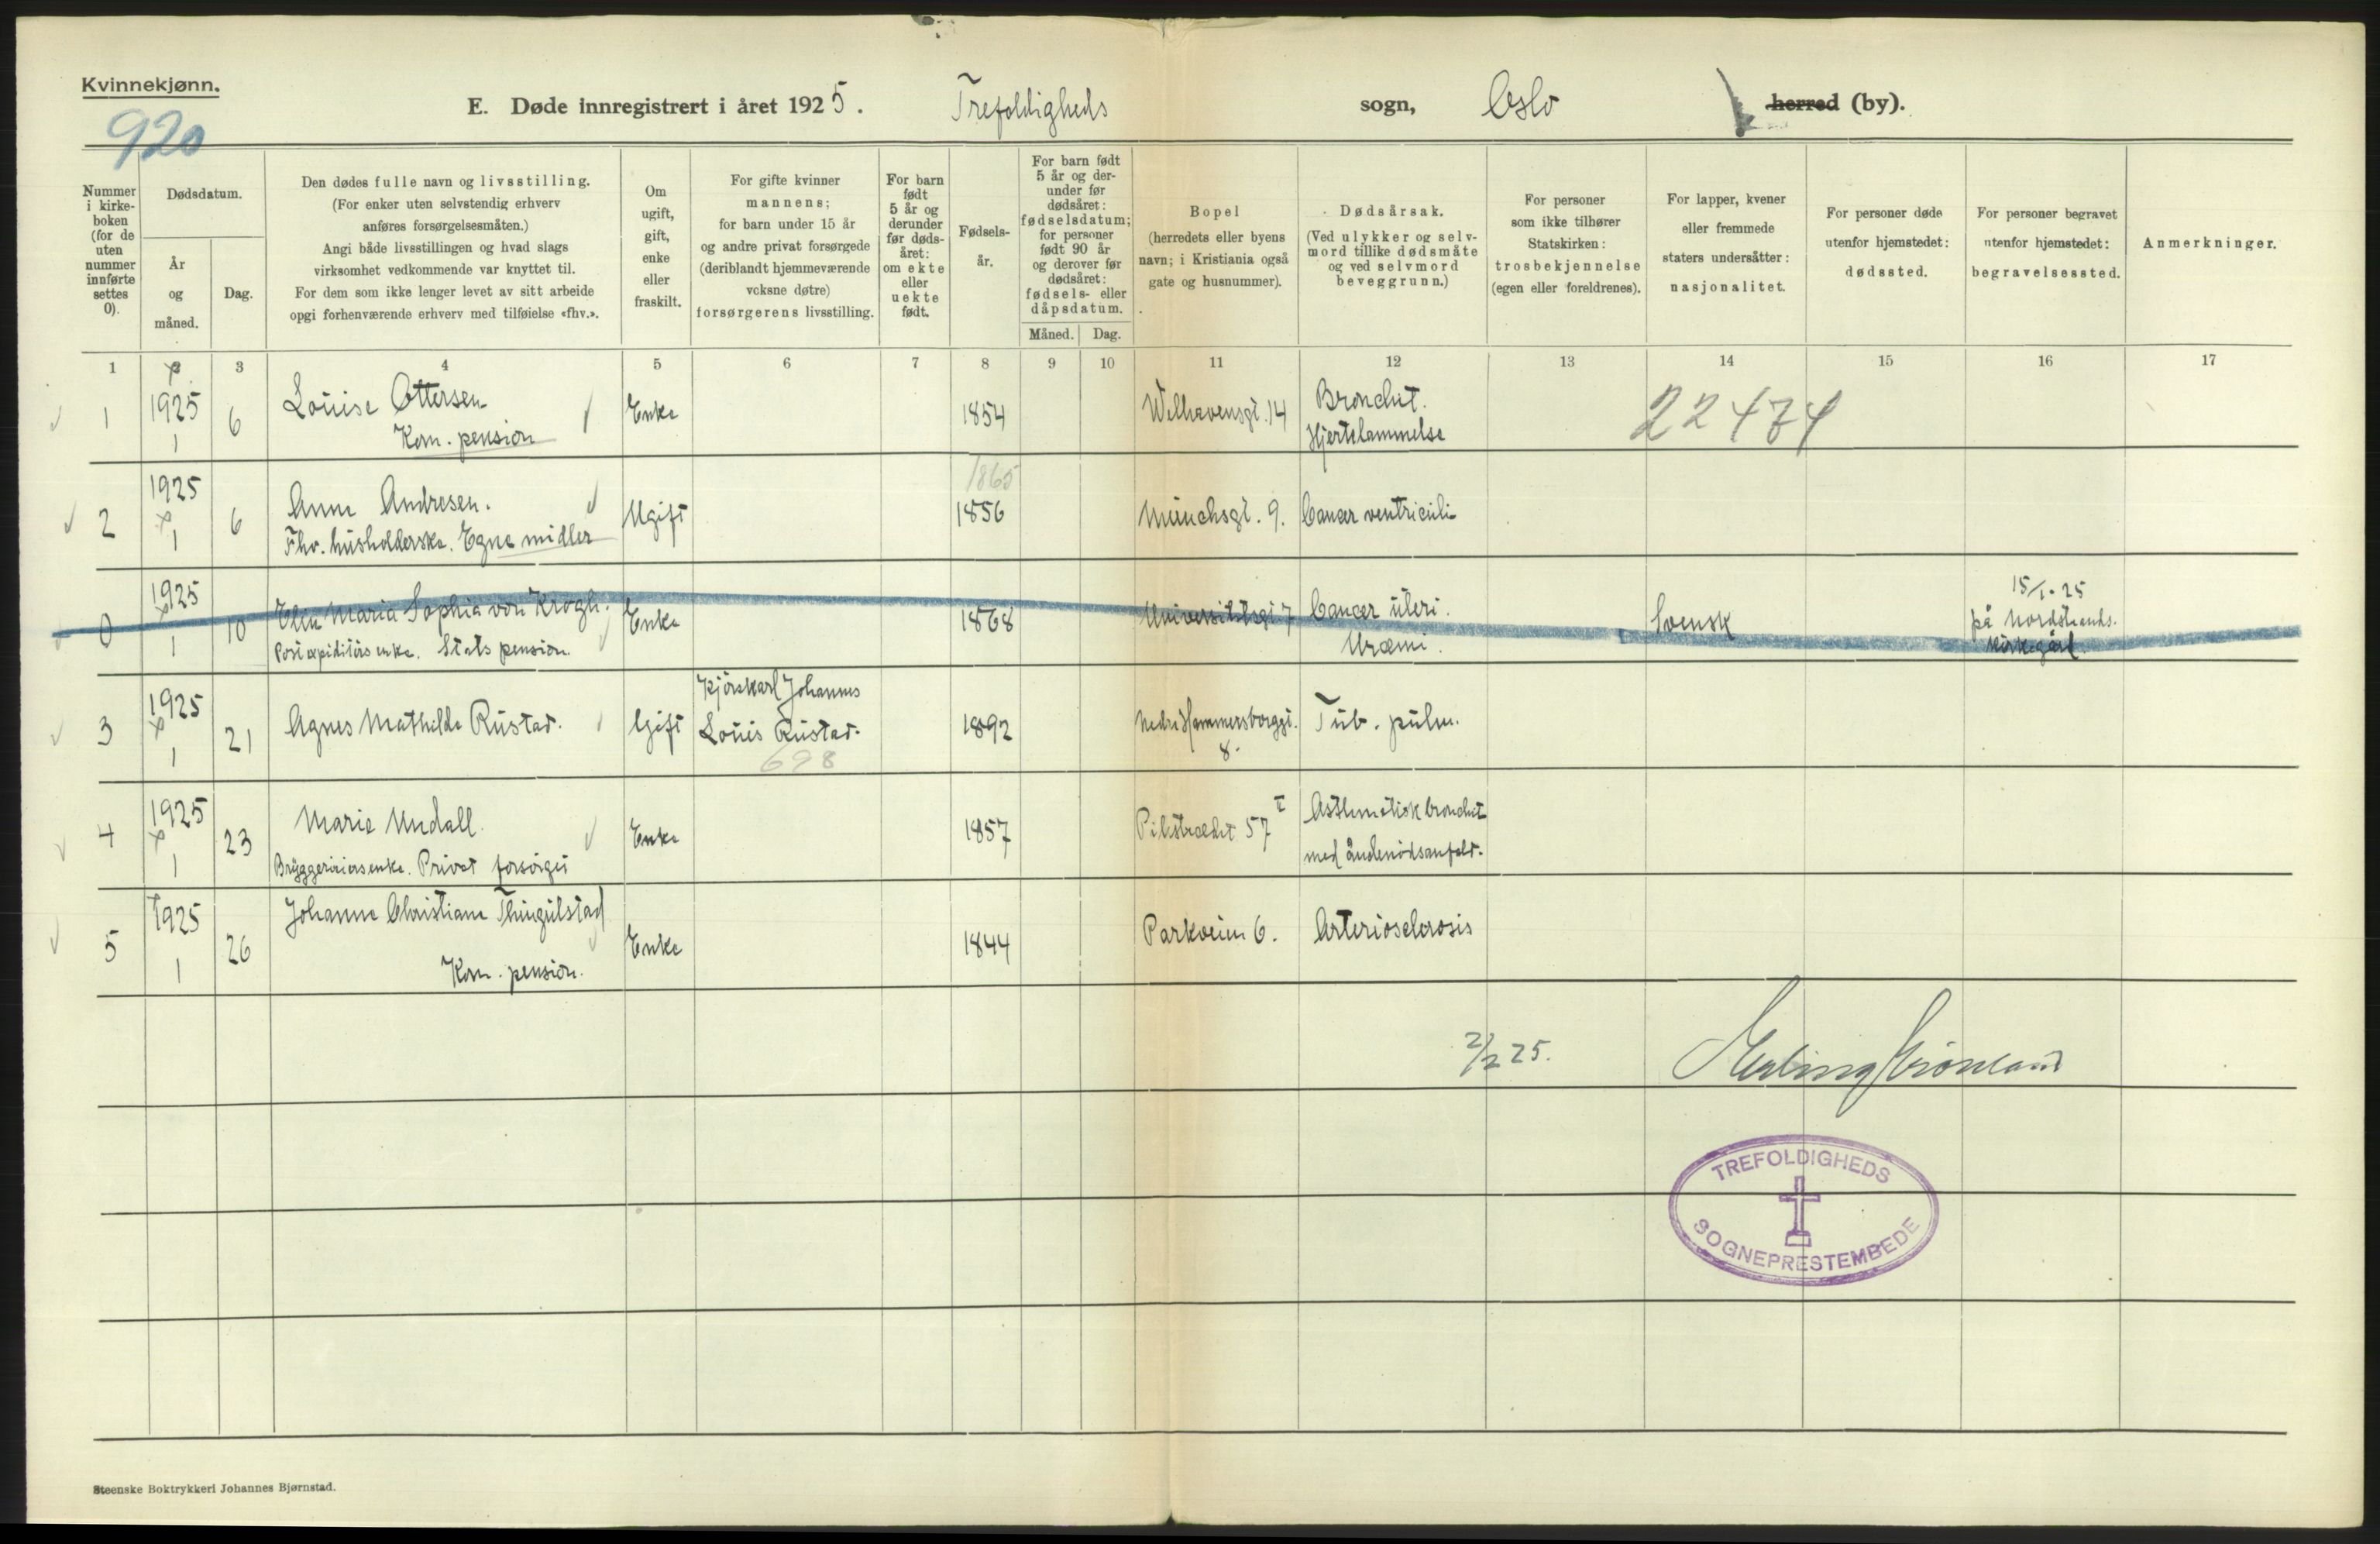 Kvinnekjønn.
920
E. Døde innregistrert i året 1925. Trefoldigheds sogn, Oslo herred (by).
Nummer i kirke-boken (for de uten nummer innførte settes 0).
Dødsdatum.
År og måned.
Dag.
Den dødes fulle navn og livsstilling.
(For enker uten selvstendig erhverv
anføres forsørgelsesmåten.)
Angi både livsstillingen og hvad slags
virksomhet vedkommende var knyttet til.
For dem som ikke lenger levet av sitt arbeide
opgi forhenværende erhverv med tilføielse «fhv.».
Om
ugift,
gift,
enke
eller
fraskilt.
For gifte kvinner
mannens;
for barn under 15 år
og andre privat forsørgede
(deriblandt hjemmeværende
vcksne døtre)
forsørgerens livsstilling.
For barn
født
5 år og
derunder
før døds-
året:
om ekte
eller
uekte
født.
Fødsels-
år.
For barn født
5 år og der-
under før
dødsåret:
fødselsdatum;
for personer
født 90 år
og derover før
dødsåret:
fødsels- eller
dåpsdatum.
Måned. Dag.
Bopel
(herredets eller byens
navn; i Kristiania også
gate og husnummer).
Dødsårsak.
(Ved ulykker og selv-
mord tillike dødsmåte
og ved selvmord
beveggrunn.)
For personer
som ikke tilhører
Statskirken:
trosbekjennelse
(egen eller foreldrenes).
For lapper, kvener
eller fremmede
staters undersåtter:
nasjonalitet.
For personer døde
utenfor hjemstedet:
dødssted.
For personer begravet
utenfor hjemstedet:
begravelsessted.
Anmerkninger.
1 2 3 4 5 6 7 8 9 10 11 12 13 14 15 16 17
1 1925 1 6 Louise Ottersen Enke 1854 Welhavensgt. 14 Bronchit. 22474
Kom. pension Hjertelammelse
1865
2 1925 1 6 Anne Andresen. Ugift 1856 Munchsgt. 9. Cancer ventriculi
Fhv. husholderske. Egne midler
0 1925 1 10 Elin Maria Sophia von Krogh. Enke 1868 Universitetsgt 7 Cancer uteri. Svensk 15/1-25
Postexpeditørs enke. Stats pension. Uræmi. på Nordstrands.
kirkegård.
3 1925 1 21 Agnes Mathilde Rustad. Gift Kjørekarl Johannes
Louis Rustad. 1892 Nedre Hammersborggt. Tub. pulm.
698 8.
4 1925 1 23 Marie Undall. Enke 1857 Pilestrædet 57 II Asthmatisk bronchit
Bryggerieiersenke. Privat forsørget med åndenødsanfald.
5 1925 1 26 Johanne Christiane Thingulstad Enke 1844 Parkveien 6. Arteriosclerosis
Kom. pension.
2/2 25. Erling Grønland
TREFOLDIGHEDS
SOGNEPRESTEMBEDE
Steenske Boktrykkeri Johannes Bjørnstad.